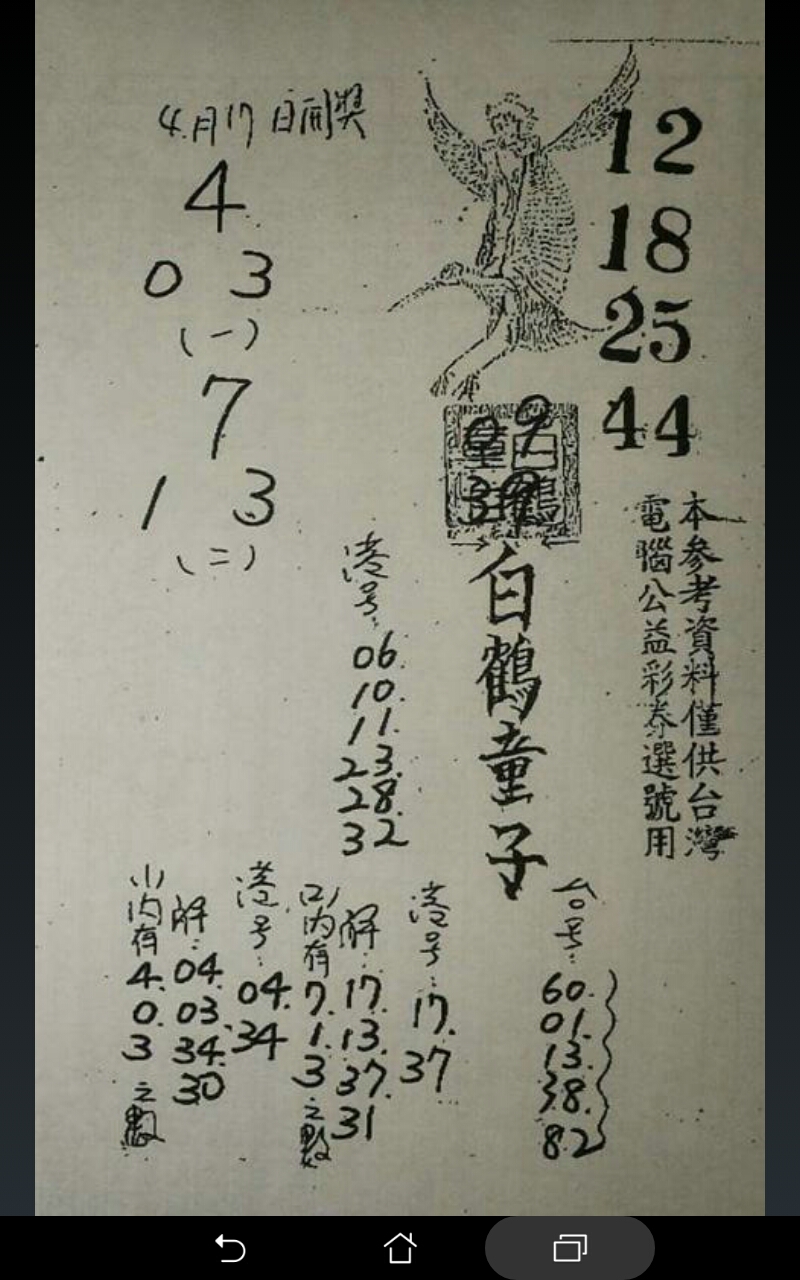 12
18
25
44
本參考資料僅供台灣
電腦公益彩券選號用
09
39
白鶴童子
4月17日開獎
4
0 3
(一)
7
1 3
(二)
港号:
06.
10.
11.
23.
28.
32
台号:
60.
01.
13.
38.
82
港号:
17.
37
解:
17.
13.
37.
31
(二)内有
7.
1.
3
之數
港号:
04.
34
解:
04.
03.
34.
30
(一)内有
4.
0.
3
之數